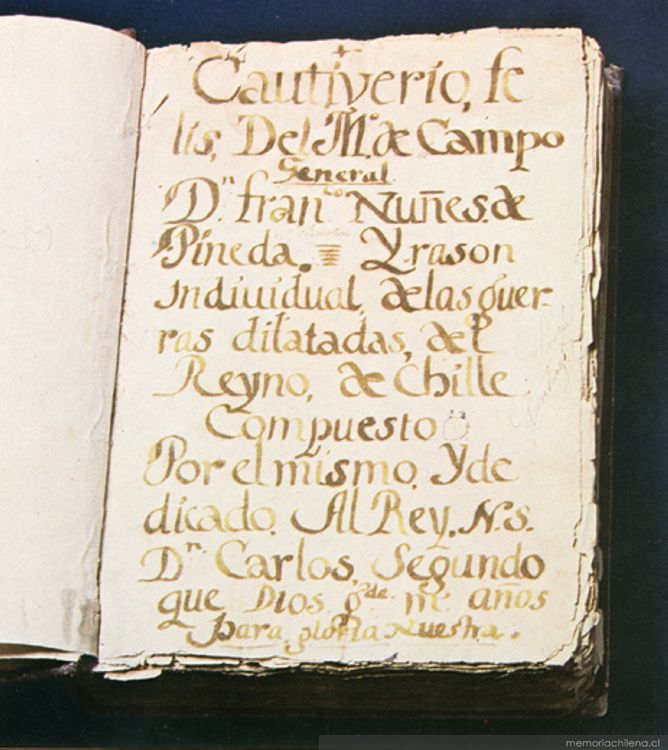 Cautiverio, fe
lis, Del M.º de Campo
General
D.n fran.co Nuñes. de
Pineda. Y. rason
Indiuidual, de las guer-
ras dilatadas, del
Reyno, de Chille
Compuesto
Por el mismo, Y de
dicado. Al Rey. N. s.
D.n Carlos, Segundo
que Dios g.de m.s años
Para gloria Nuestra.
memoriachilena.cl